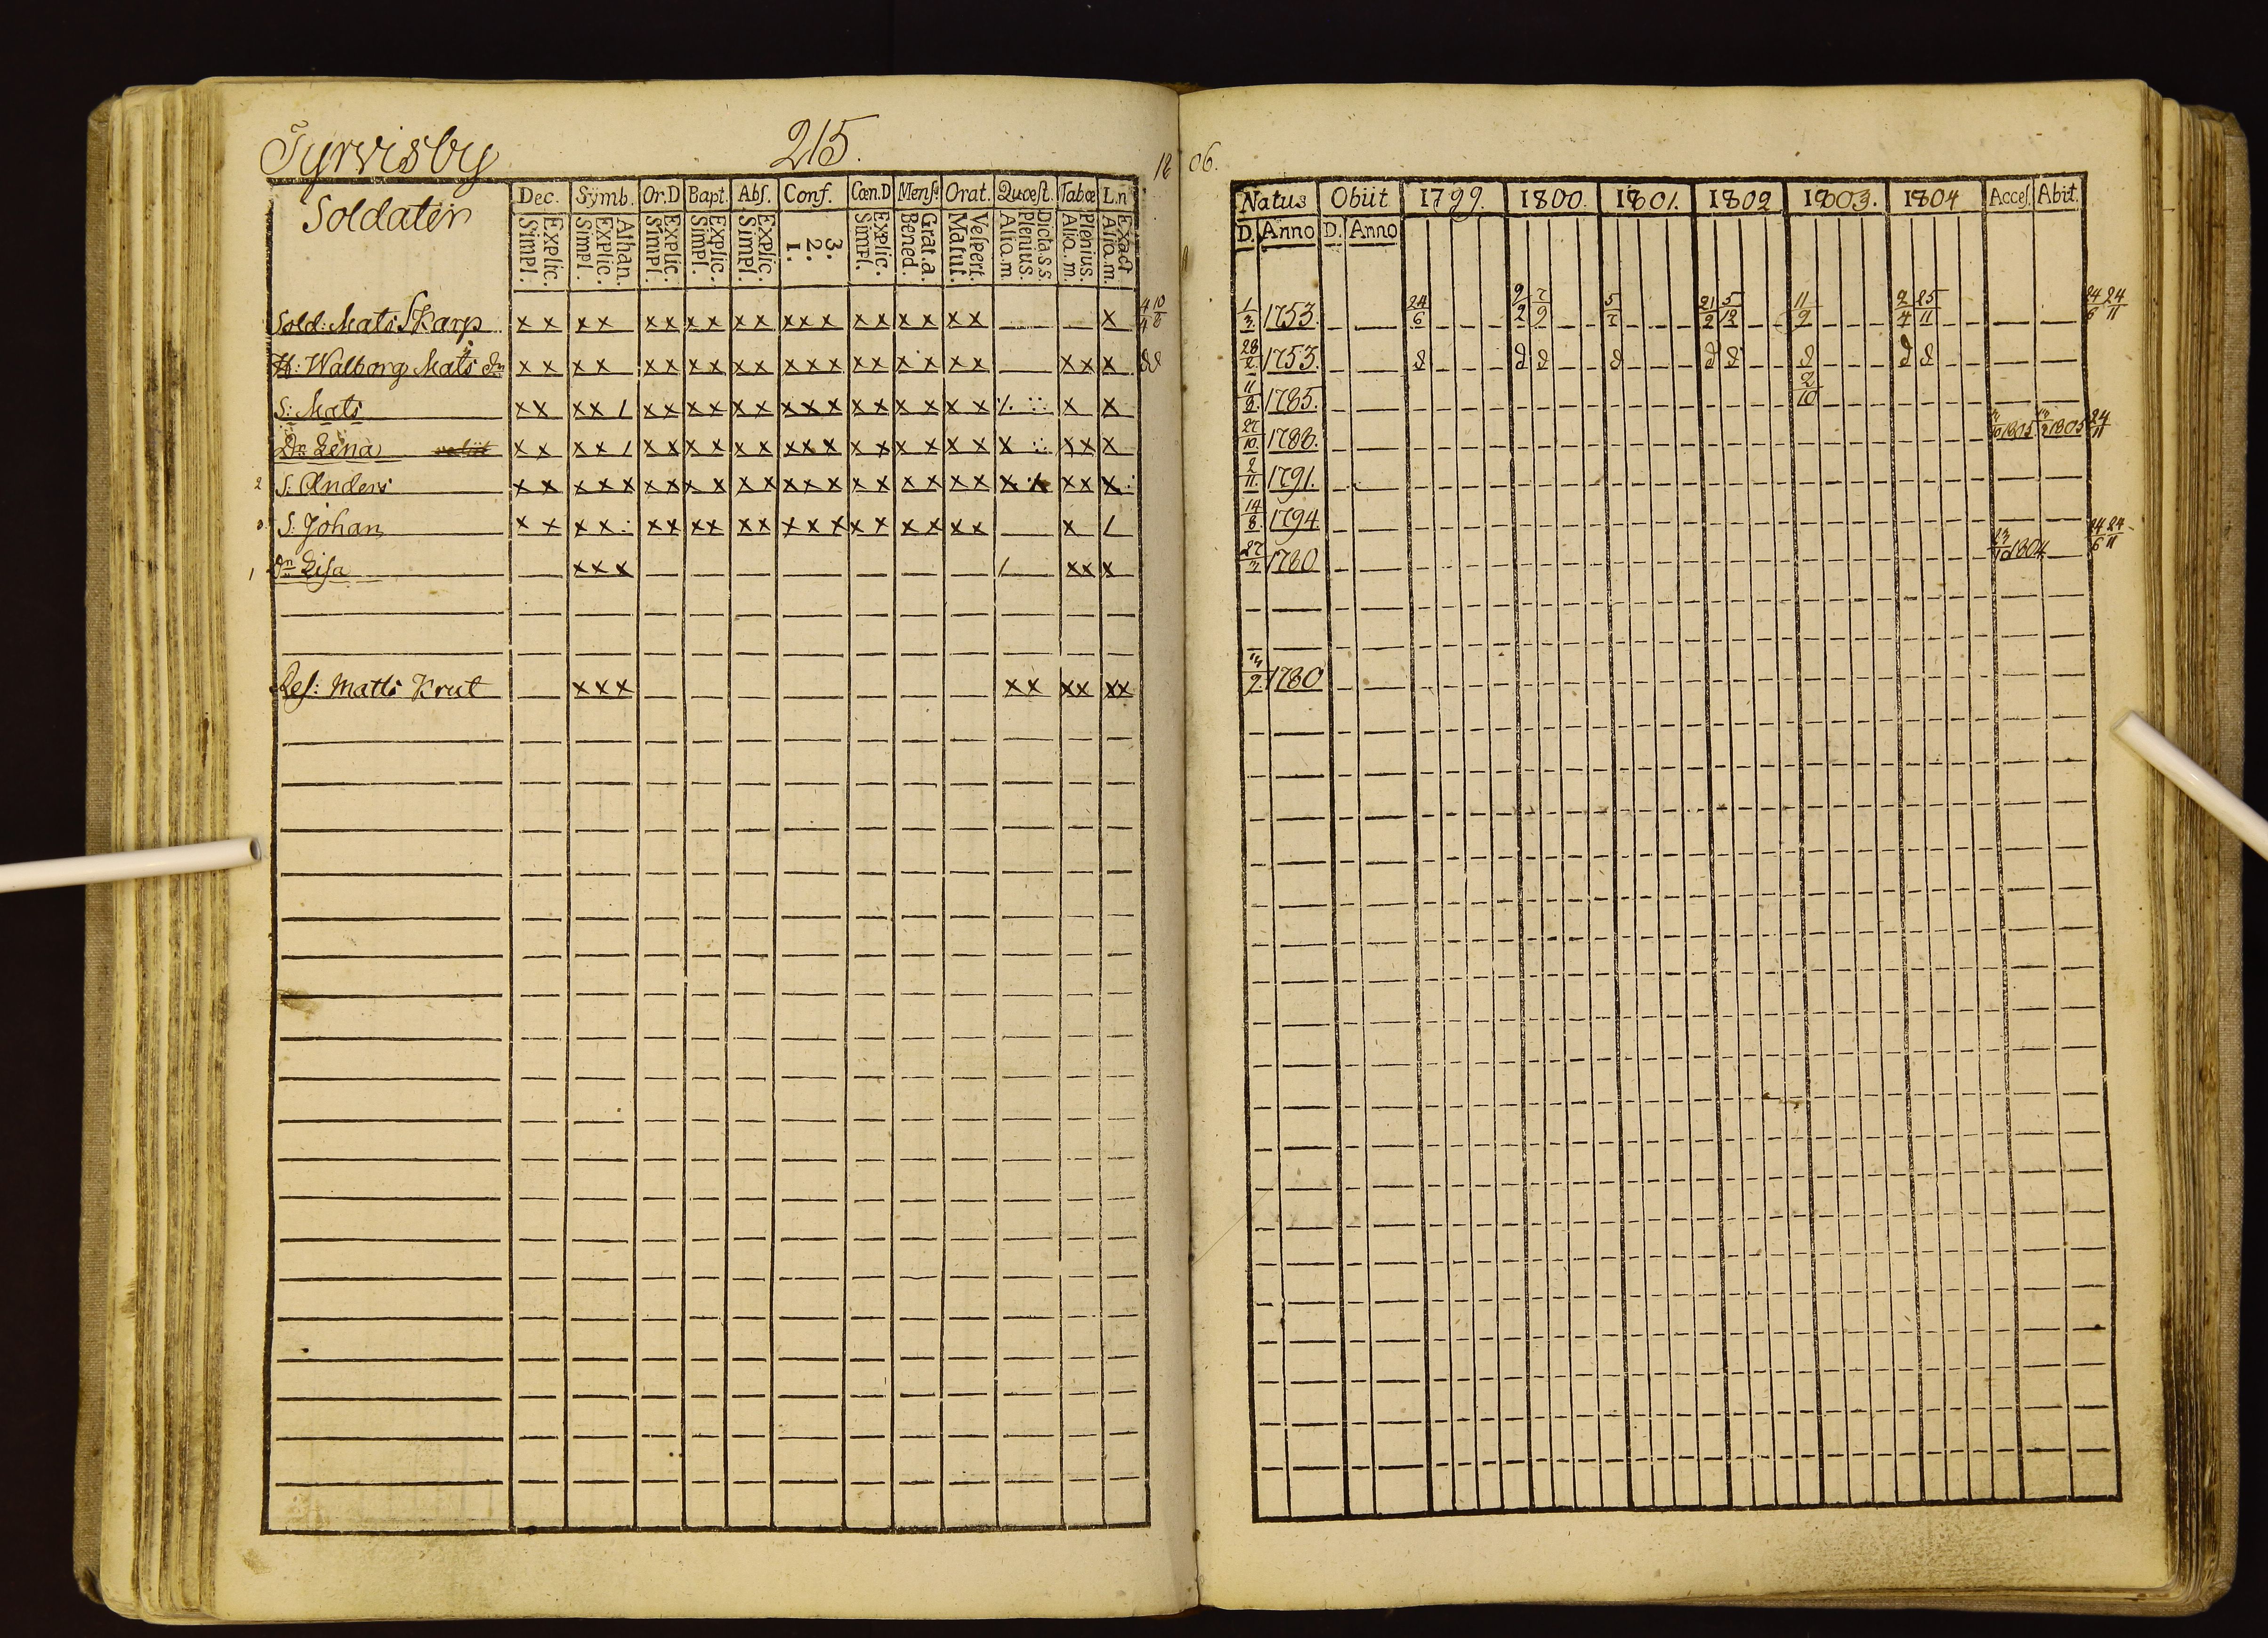 Tyrvisby 215.
18 06.
Soldaten
Dec. Symb. Or.D Bapt. Abſ. Conf. Cœn.D Menſ. Orat. Quœſt. Tabœ L.n
Simpl. Explic. Simpl. Explic. Athan. Simpl. Explic. Simpl. Explic. Simpl. Explic. 1. 2. 3. Simpl. Explic. Bened. Grat.a. Matut. Veſpert. Alia.m. Plenius. Dicta.s.s. Alia.m. Plenius. Alia.m. Exact
Natus Obiit 1799. 1800. 1801. 1802 1803. 1804 Acceſ. Abit.
D. Anno D. Anno
Sold. Mats Skarp x x x x x x x x x x x x x x x x x x x x 4/4 10/8
H: Walborg Mats dr x x x x x x x x x x x x x x x x x x x x x x d d
S: Mats x x x x / x x x x x x x x x x x x x x x /. x x
Dr Lena x x x x / x x x x x x x x x x x x x x x x x x x
2 S: Anders x x x x x x x x x x x x x x x x x x x x x x x x x
S. Johan x x x x x x x x x x x x x x x x x x x x /
1 Dr Liſa x x x / x x x
Reſ: Matts Krut x x x x x x x x x
1/3 1753. 24/6 2/2 7/9 5/7 21/2 5/12 11/9 2/4 25/11 24/6 24/11
28/2 1753. d d d d d d d d d
11/2 1785. 2/10
27/10 1788. 1805. 1805 24/11
2/11 1791.
14/8 1794
27/3 1780 1804 24/6 24/11
1780